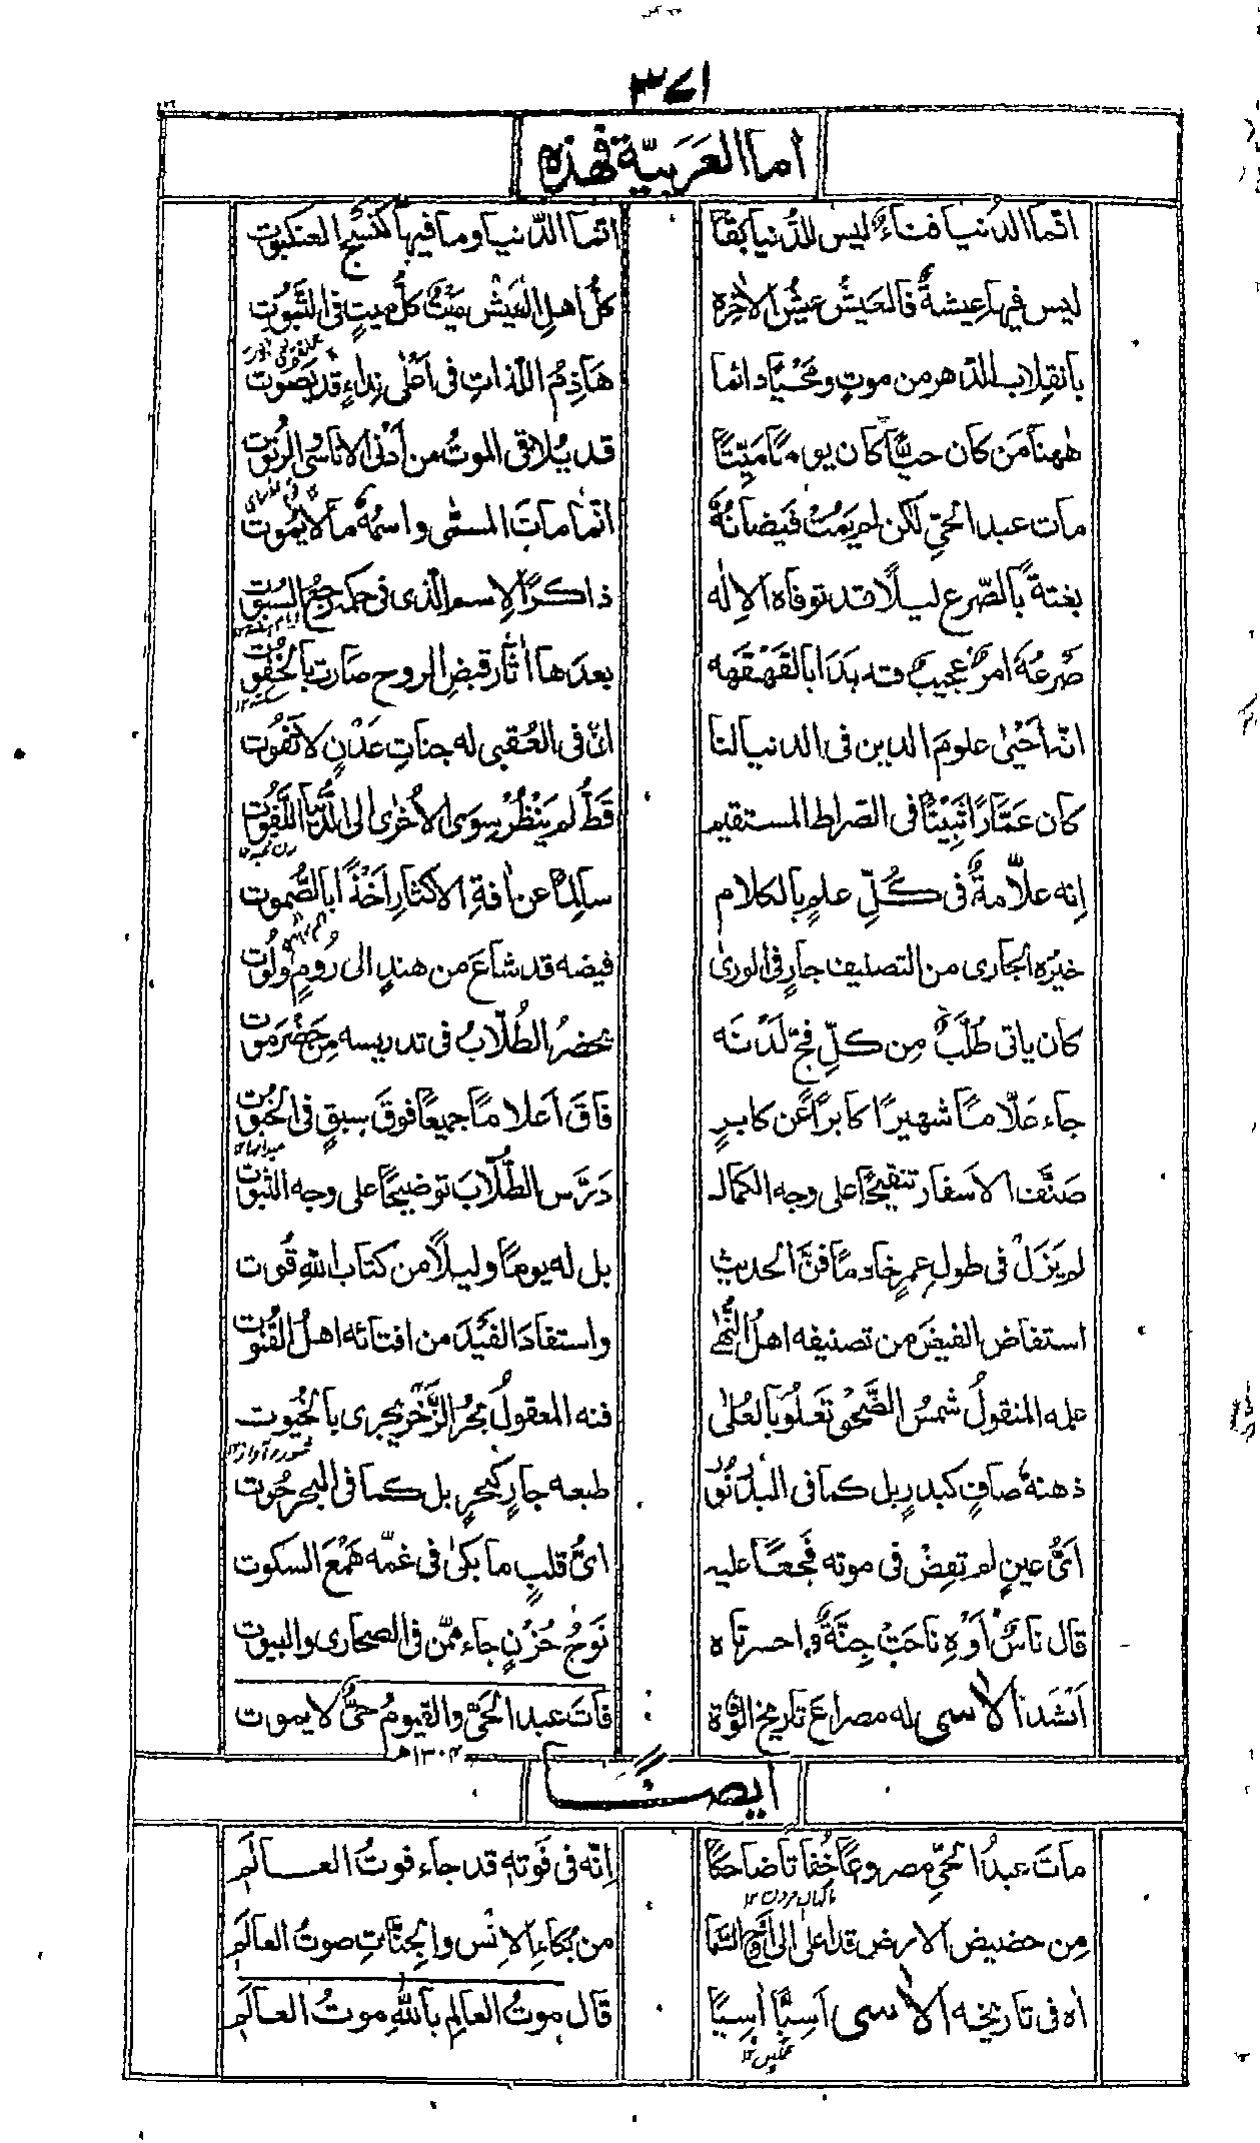 ٣٧١
اما العَرَبِيّة فهذه
انّما الدُنيا فناءٌ ليس للدُّنيا بقا انّما الدّنيا وما فيها كنَسْجِ العنكبوت
ليس فيها عيشةٌ فالعَيشُ عيشُ الاٰخره كلُّ اهلِ العَيْش مَيْتٌ كلُّ ميتٍ فى الثُّبُوت
بانقِلاب الدّهر من موتٍ ومَحْيًا دائما هَاذِمُ اللّذاتِ فى اَعْلٰى نِداءٍ قد يَصُوت
هٰهنا مَن كان حيًّا كان يومًا مَيِّتًا قد يُلاقى الموتُ من اَدْنٰى الاناس والرُّتُوت
مات عبد الحَىّ لكن لم يَمُتْ فَيضانُهُ انّما ماتَ المسمّٰى واسمُهٗ ما لا يَمُوت
بغتةً بالصّرع ليلًا قد توفاه الاِلٰه ذاكرًا لاِسم الّذى فى حكمه رجعُ السُبُوت
صَرعُهٗ امرٌ عجيبٌ قد بَدَا بالقَهْقَهه بعدَها اٰثار قبضِ الروح صارت بالخُفُوت
انّه اَحْيٰى علومَ الدين فى الدنيا لنا انّ فى العُقبى له جناتِ عَدْنٍ لا تَفُوت
كان عَمَّارًا ثَبِيْتًا فى الصّراط المستقيم قَطُّ لم يَنْظُرْ سِوَى الاُخرٰى الى الدُّنيا اللَّفُوت
اِنه علّامةٌ فى كُلِّ علمٍ بالكلام سالمًا عن اٰفةِ الاكثارِ اَخْذًا بالصُّموت
خيرُه الجارى من التصنيف جارٍ فى الورٰى فيضه قد شاعَ من هندٍ الى رُومٍ ولُوت
كان ياتى طُلَّبٌ مِن كلِّ فجٍّ لَدُنَه يَحضرُ الطُلّابُ فى تدريسه مِن حَضْرَمَوت
جاء علّامًا شهيرًا كابرًا عن كابرٍ فاقَ اَعلامًا جميعًا فوقَ سبقٍ فى الخُبُوت
صَنَّف الاَسفار تنقيحًا على وجه الكمال دَرَّس الطُّلّابَ توضيحًا على وجه الثبوت
لم يَزَلْ فى طول عمرٍ خادمًا فنَّ الحديث بل له يومًا وليلًا من كتاب اللّٰهِ قُوت
استفاض الفيضَ من تصنيفه اهلُ النُّهٰى واستفادَ الفَيْدَ من افتائه اهلُ القُنُوت
علمه المنقولُ شمسُ الضُّحٰى تَعلُو بالعُلٰى فنه المعقولُ بحرُ الزَّخْر يجرى بالخُيُوت
ذهنهٗ صافٍ كبدرٍ بل كما فى البدْرِ نُور طبعه جارٍ كبحرٍ بل كما فى البحر حُوت
اَىُّ عينٍ لم تفِضْ فى موته فَجعًا عليه اىُّ قلبٍ ما بكٰى فى غمّه هَمْعَ السكوت
قال ناسٌ اَوْهِ ناحَتْ جِنَّةٌ واحسرتاه نَوحُ حُزْنٍ جاء ممّن فى الصحارى والبيوت
اَنْشدَ الاٰسى له مصراعَ تاريخ الوَفاة فاتَ عبد الحَىّ والقيومُ حىٌّ لا يموت
١٣٠٤ھ
ايضًا
ماتَ عبدُ الحَىِّ مصروعًا خُفاتا ضاحكًا اِنّه فى فَوتهٖ قد جاء فوتُ العالَم
مِن حضيض الارض قد اعلى الى اَوج السَّما من بُكاءِ الاِنْس والجِنّاتِ صوتُ العالَم
اٰه فى تاريخه الاٰسى اَسِيًّا اٰسِيًا قال موتُ العالِم باللّٰهِ موتُ العالَم